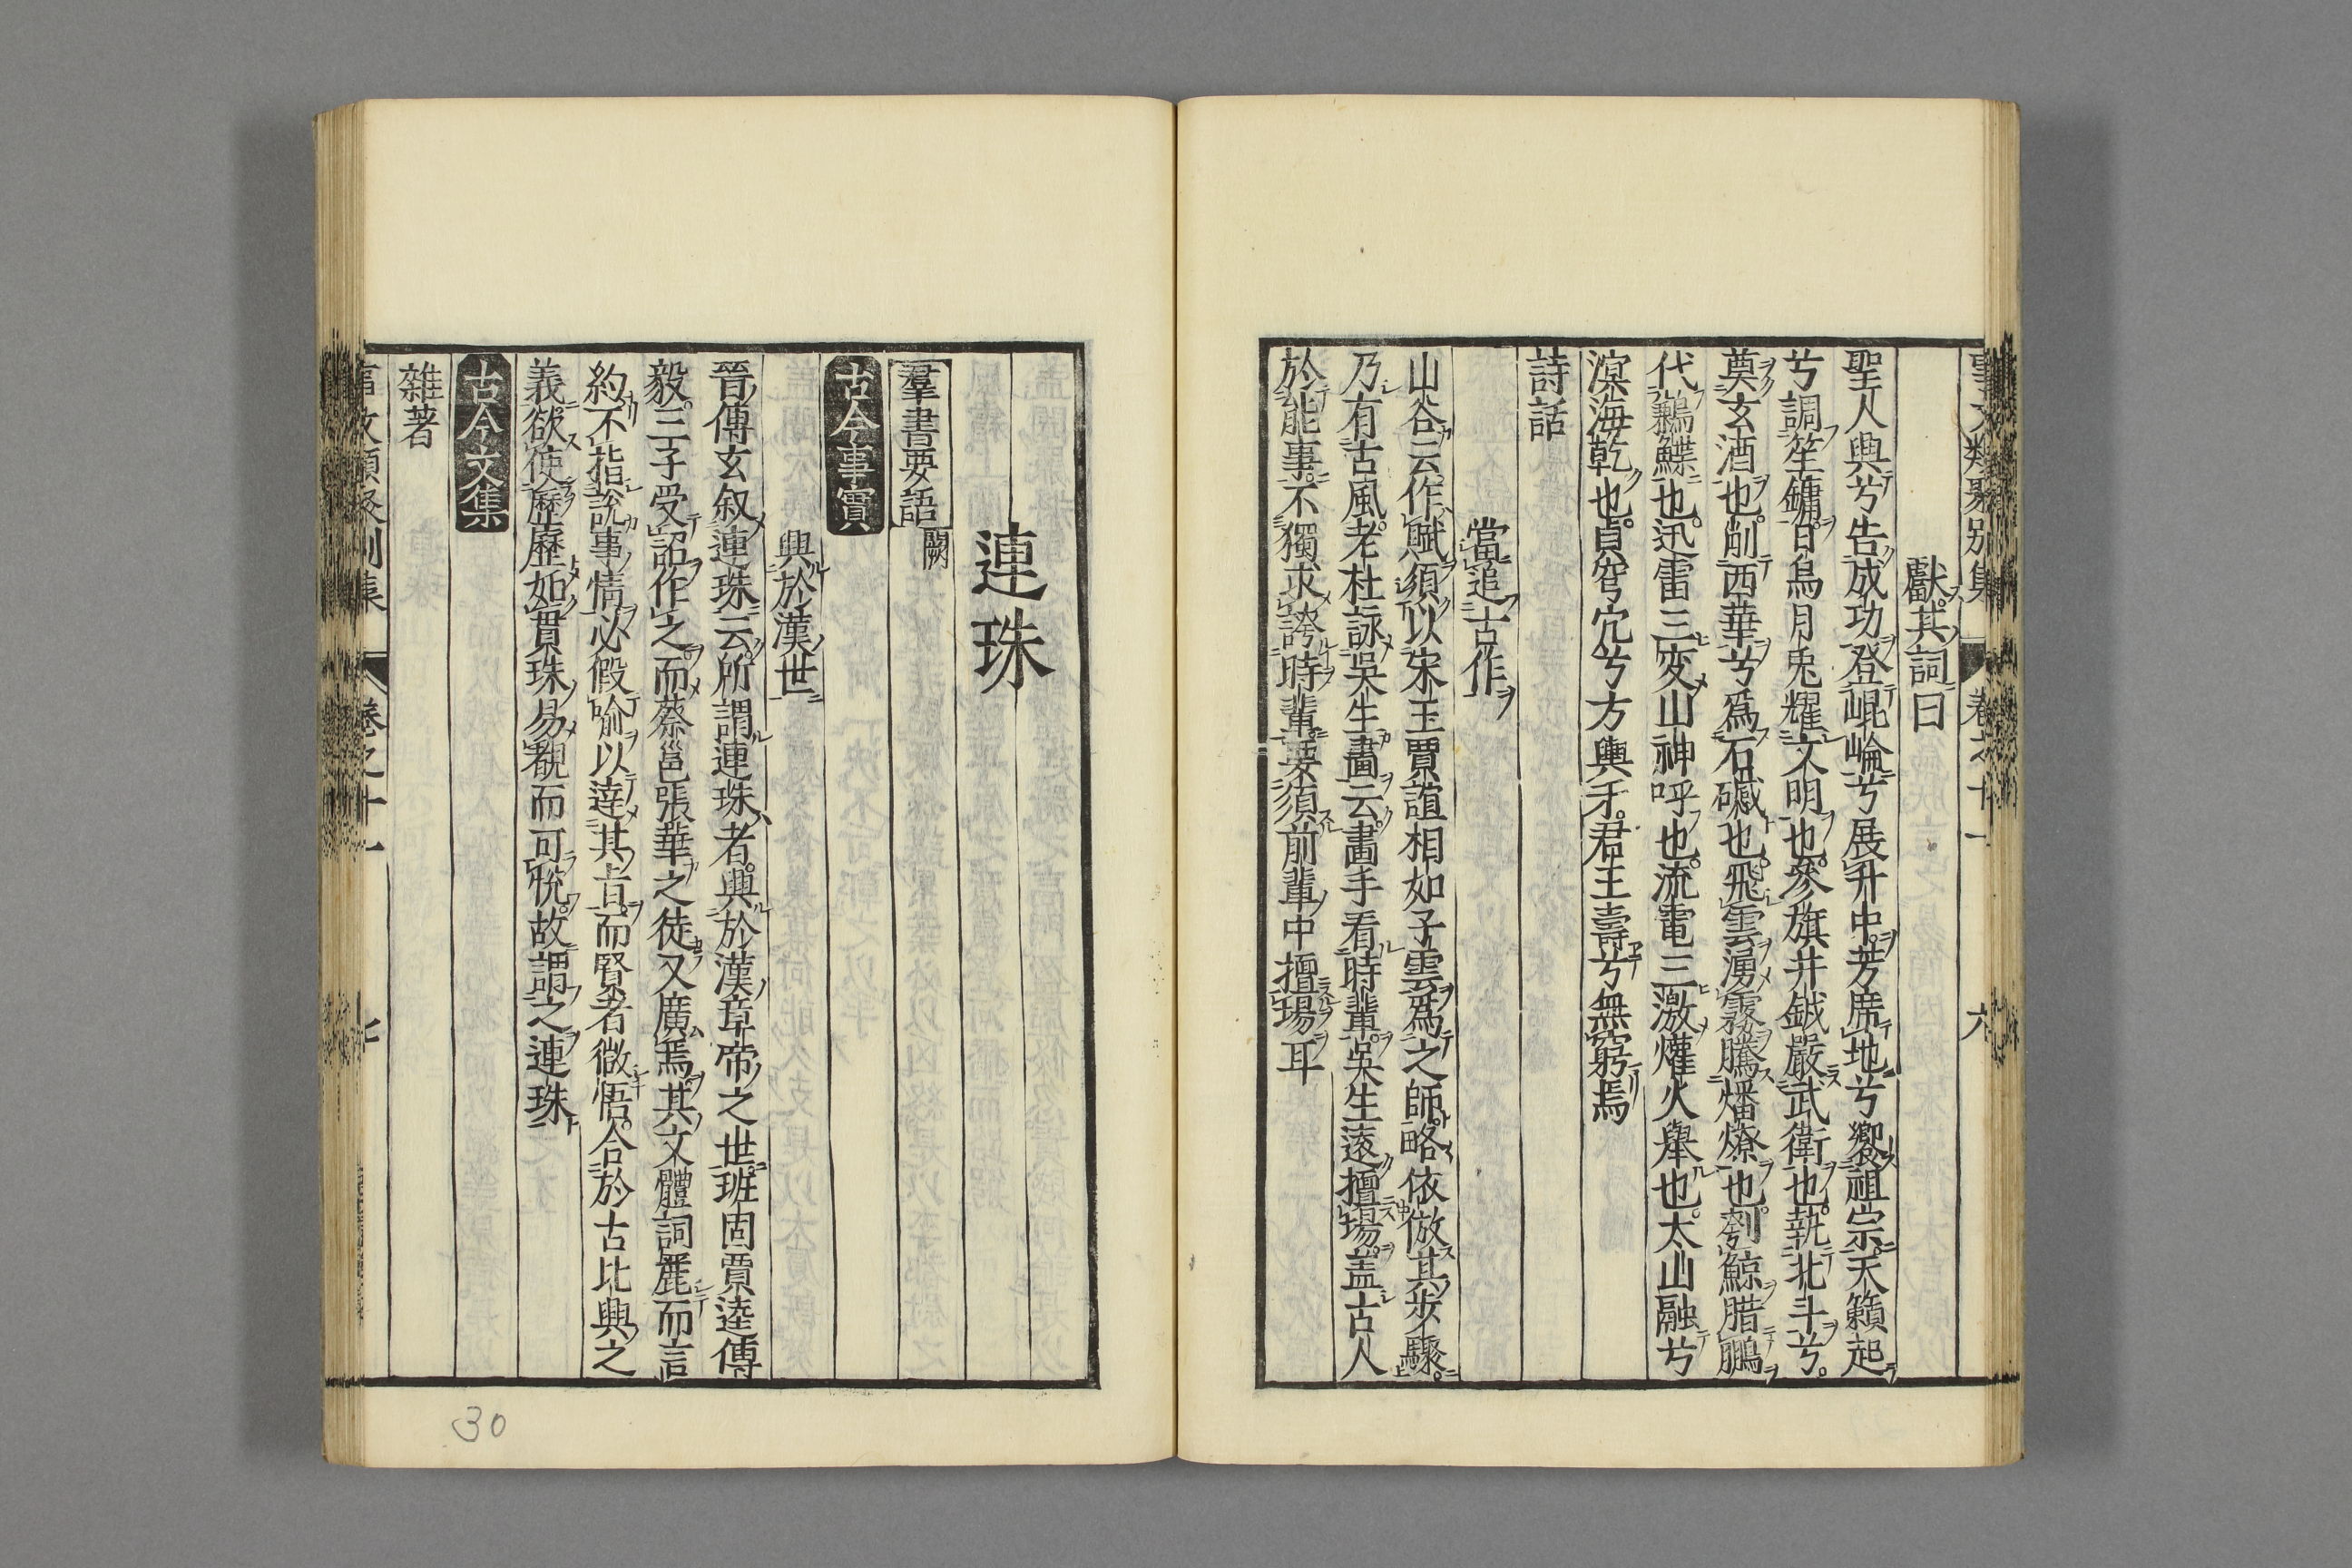 獻其詞曰
聖人興兮告成功登崐崘兮展升中芳席地兮饗祖宗天籟起
兮調笙鏞日烏月兎耀文明也參旗井鉞嚴武衛也執北斗兮
奠玄酒也削西華兮爲石磩也飛雲湧霧騰燔燎也刳鯨腊鵬
代鶼鰈也迅雷三変山神呼也流電三激爟火舉也太山融兮
溟海乾也貞穹冗兮方輿矛君王壽兮無窮焉
詩話
當追古作
山谷云作賦須以宋玉賈誼相如子雲爲之師略依倣其步驟
乃有古風老杜詠吳生畫云畫手看時輩吳生遠擅場盖古人
於能事不獨求誇時輩要須前輩中擅場耳
連珠
羣書要語 闕
古今事實
興於漢世
晉傅玄叙連珠云所謂連珠者興於漢章帝之世班固賈逵傅
毅三子受詔作之而蔡邕張華之徒又廣焉其文體詞麗而言
約不指說事情必假喻以達其旨而賢者微悟合於古比興之
義欲使歷歷如貫珠易覩而可悅故謂之連珠
古今文集
雜著
事文類聚別集 卷之十一 七
30